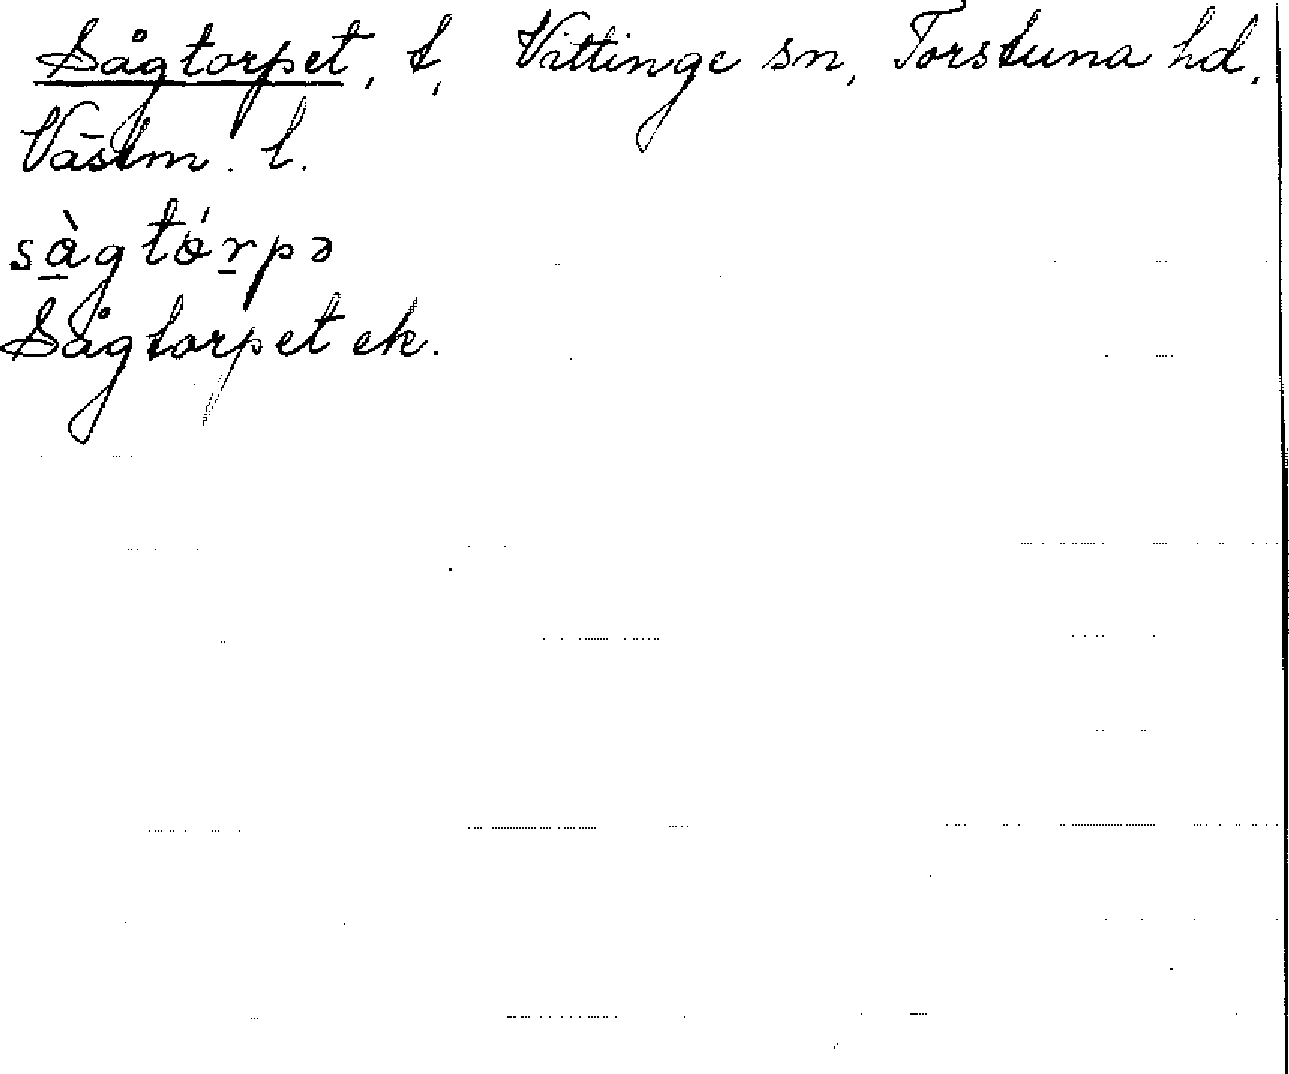 Sågtorpet, t, Vittinge sn, Torstuna hd,
Västm. l.
sàgtórpə
Sågtorpet ek.